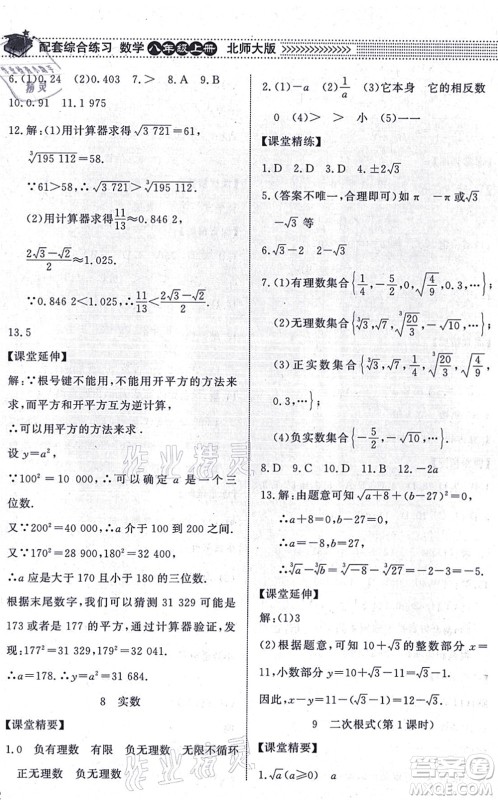 配套综合练习 数学 八年级上册 北师大版
6.(1)0.24 (2)0.403 7.> 8.A 9.B
10.0.91 11.1 975
12.解:(1)用计算器求得√3 721=61,
∛195 112=58.
∵61>58,∴√3 721>∛195 112.
(2)用计算器求得11/13≈0.846 2,
(2√3-√2)/2≈1.025.
∵0.846 2<1.025,∴11/13<(2√3-√2)/2.
13.5
【课堂延伸】
解:∵根号键不能用,不能用开平方的方法来
求,而开平方与平方互逆计算,
∴可以用平方的方法来求.
设y=a².
∵100²=10 000,∴可以确定a是一个三
位数.
又∵200²=40 000,∴a介于100到200
之间.
又∵170²=28 900,180²=32 400,
∴a应是大于170且小于180的三位数.
根据末尾数字,我们可以猜测31 329可能
是173或者177的平方,通过计算器验证,
发现,177²=31 329,178²=31 684.
∴a=178.
8 实数
【课堂精要】
1.0 负有理数 有限 负无理数 无限不循环
正无理数 负无理数
2.(1)-a (2)1/a (3)它本身 它的相反数
0 (4)> > 小 (5)一一
【课堂精练】
1.D 2.D 3.A 4.±2√3
5.(答案不唯一,合理即可)π -π -√3
-√3等
6.√3-2 2-√3
7.(1)有理数集合{-1/4,-5/2,0,√(4/9),0.3,…};
(2)无理数集合{∛3,√7,∛(20/3),-√10,…};
(3)正实数集合{∛3,√7,∛(20/3),√(4/9),
0.3,…};
(4)负实数集合{-5/2,-√10,-1/4,…}.
8.D 9.C 10.D 11.-6 12.-2a
13.解:由题意可知√(a+8)+(b-27)²=0,
∴a+8=0,b-27=0.
∴a=-8,b=27.
∴∛a-√(3b)=∛-8-√(3×27)=-11.
【课堂延伸】
解:(1)3
(2)根据题意,可得10+√3的整数部分为
11,小数部分为√3-1,即x=11,y=√3-1.
因此,x-y=11-(√3-1)=12-√3.
9 二次根式(第1课时)
【课堂精要】
1.√a(a≥0) a